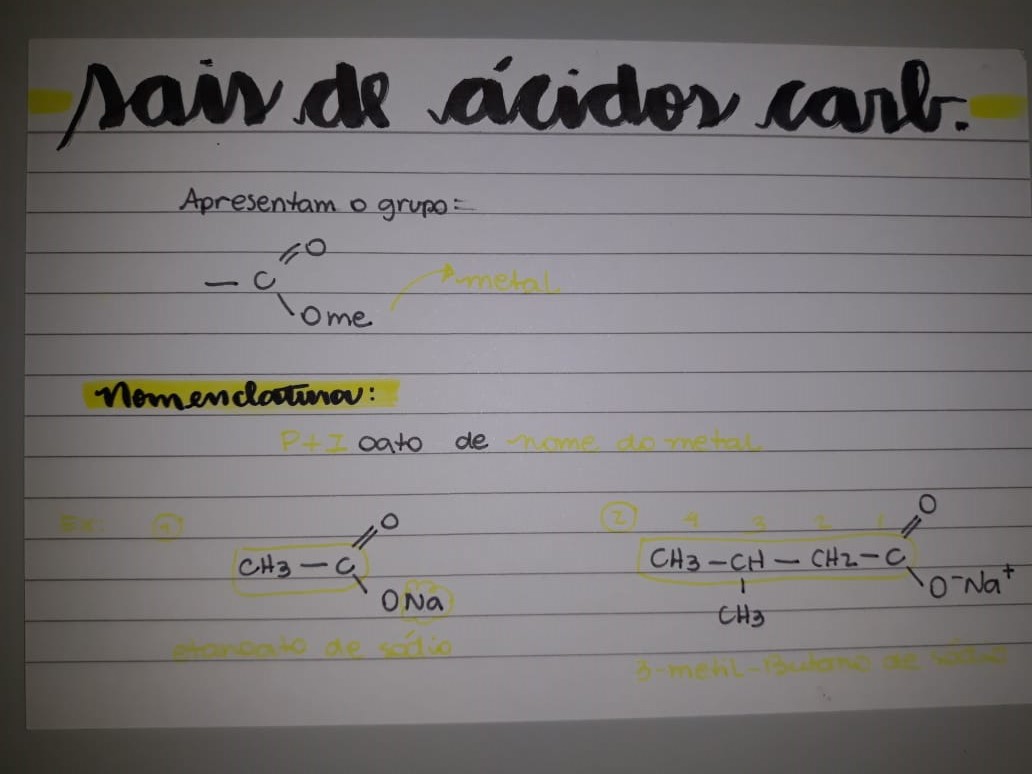 sais de ácidos carb.
Apresentam o grupo:
O
— C
metal
Ome
Nomenclatura:
P+I oato de nome do metal
Ex: 1
O
CH3 — C
ONa
etanoato de sódio
2 4 3 2 1
O
CH3 — CH — CH2 — C
O⁻Na⁺
CH3
3-metil-Butano de sódio